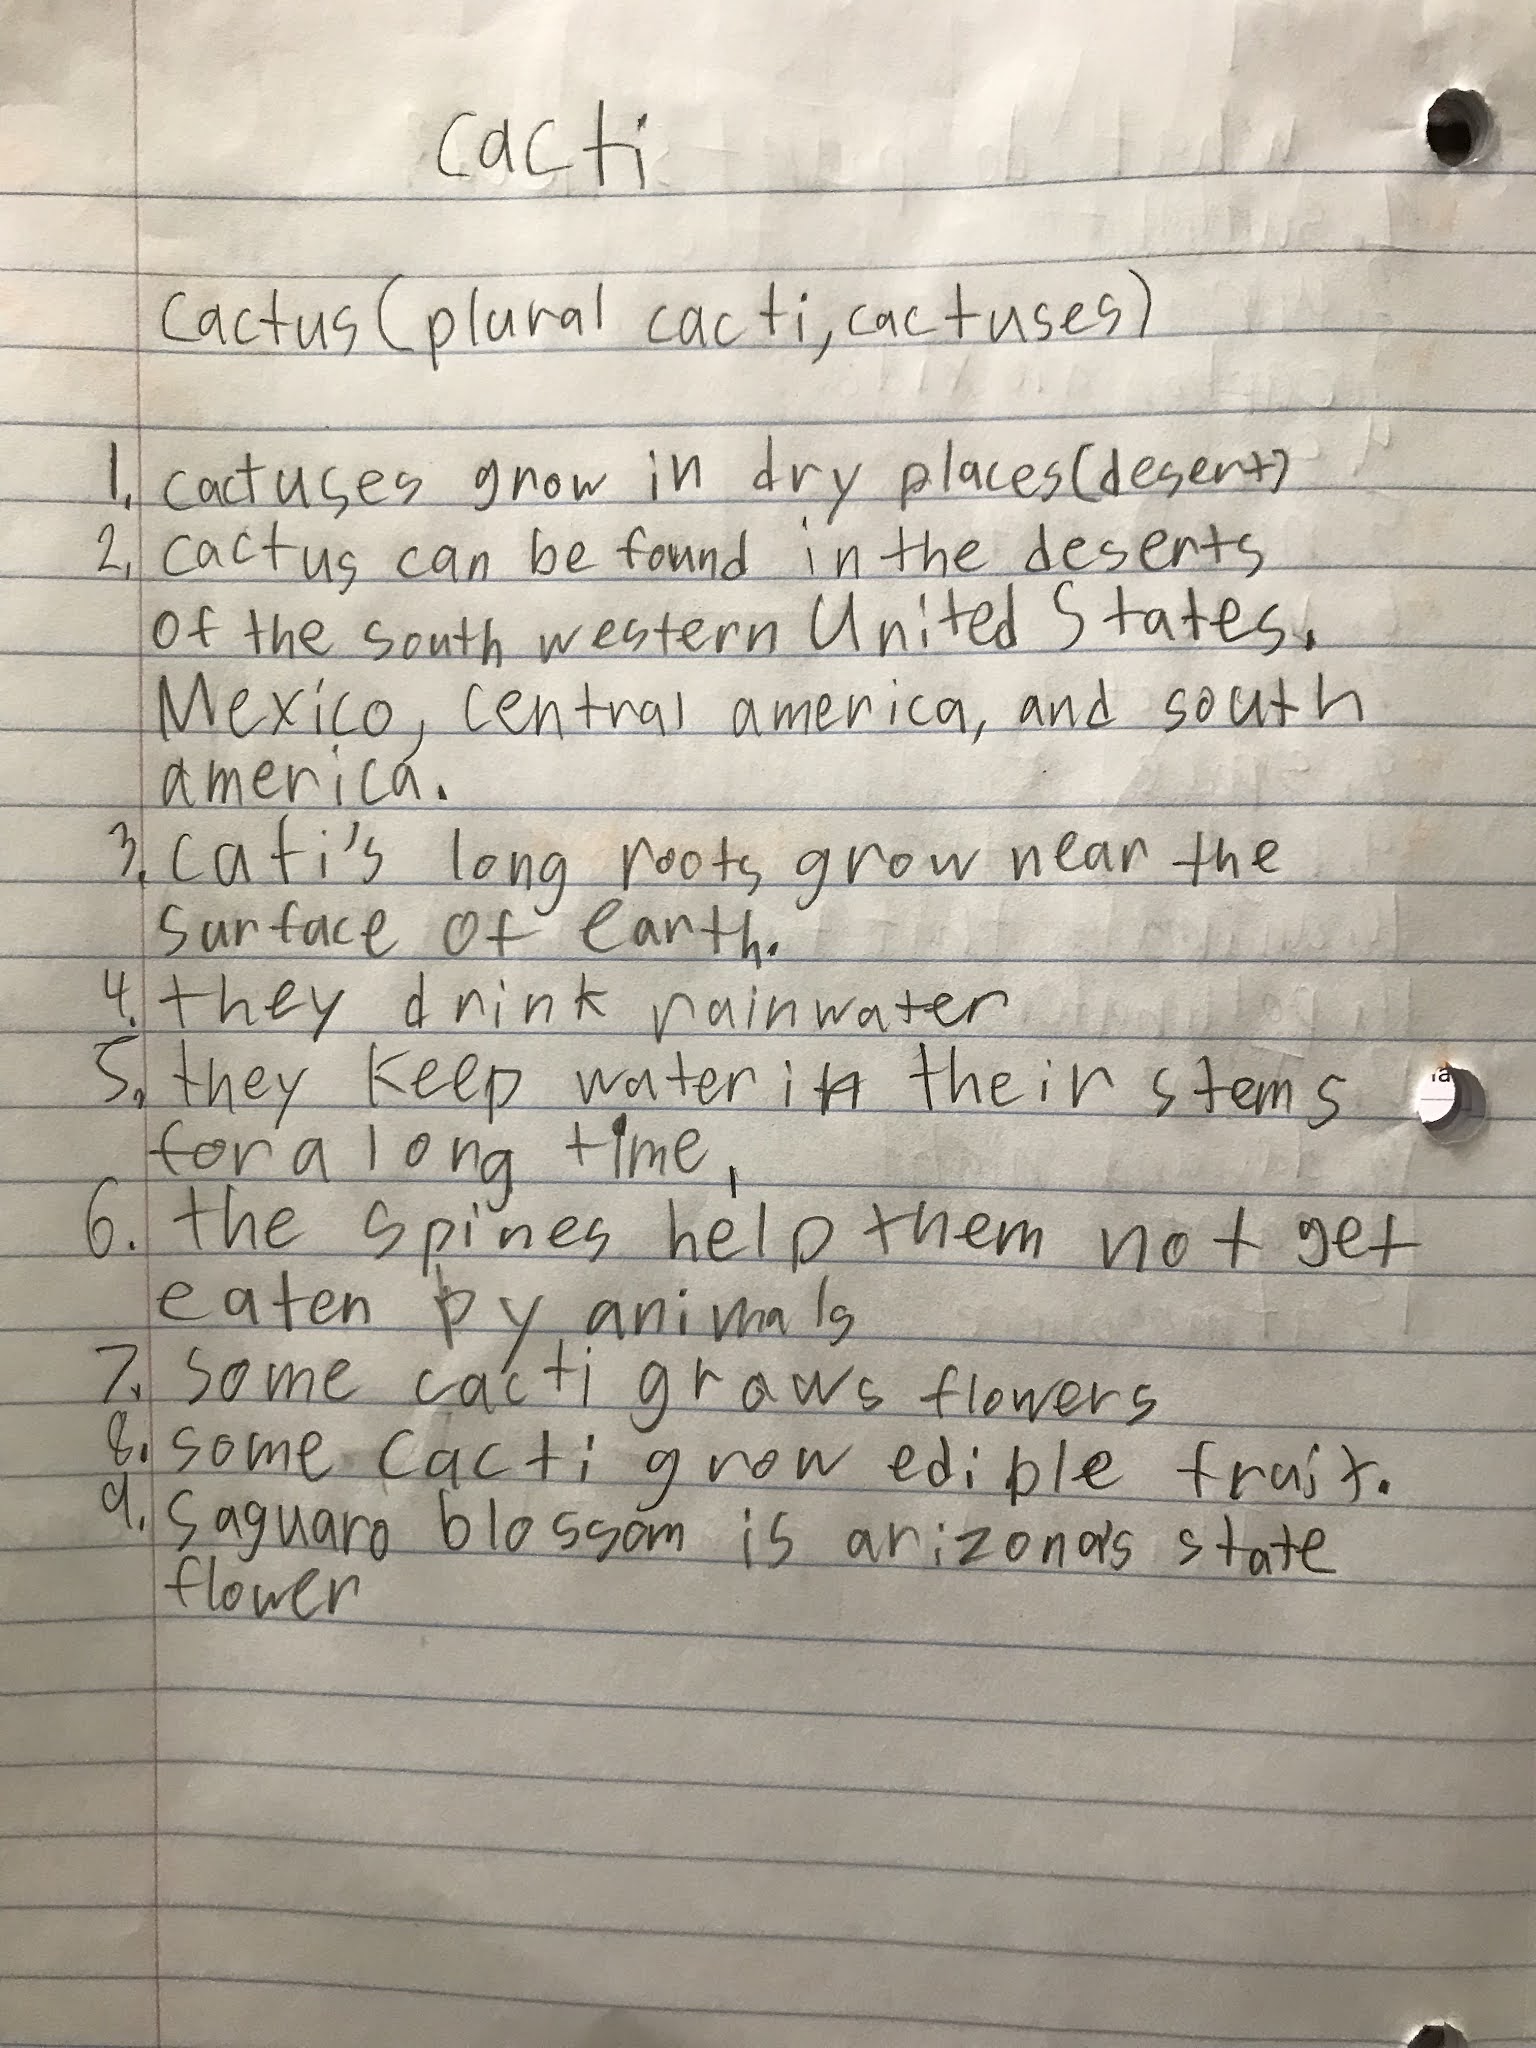 cacti
cactus(plural cacti, cactuses)
1. cactuses grow in dry places(desert)
2. cactus can be found in the deserts
of the south western United States.
Mexico, central america, and south
america.
3. cati's long roots grow near the
surface of earth.
4. they drink rainwater
5. they keep water in their stems
for a long time,
6. the spines help them not get
eaten by animals
7. some cacti graws flowers
8. some cacti grow edible fruit.
9. saguaro blossom is arizona's state
flower